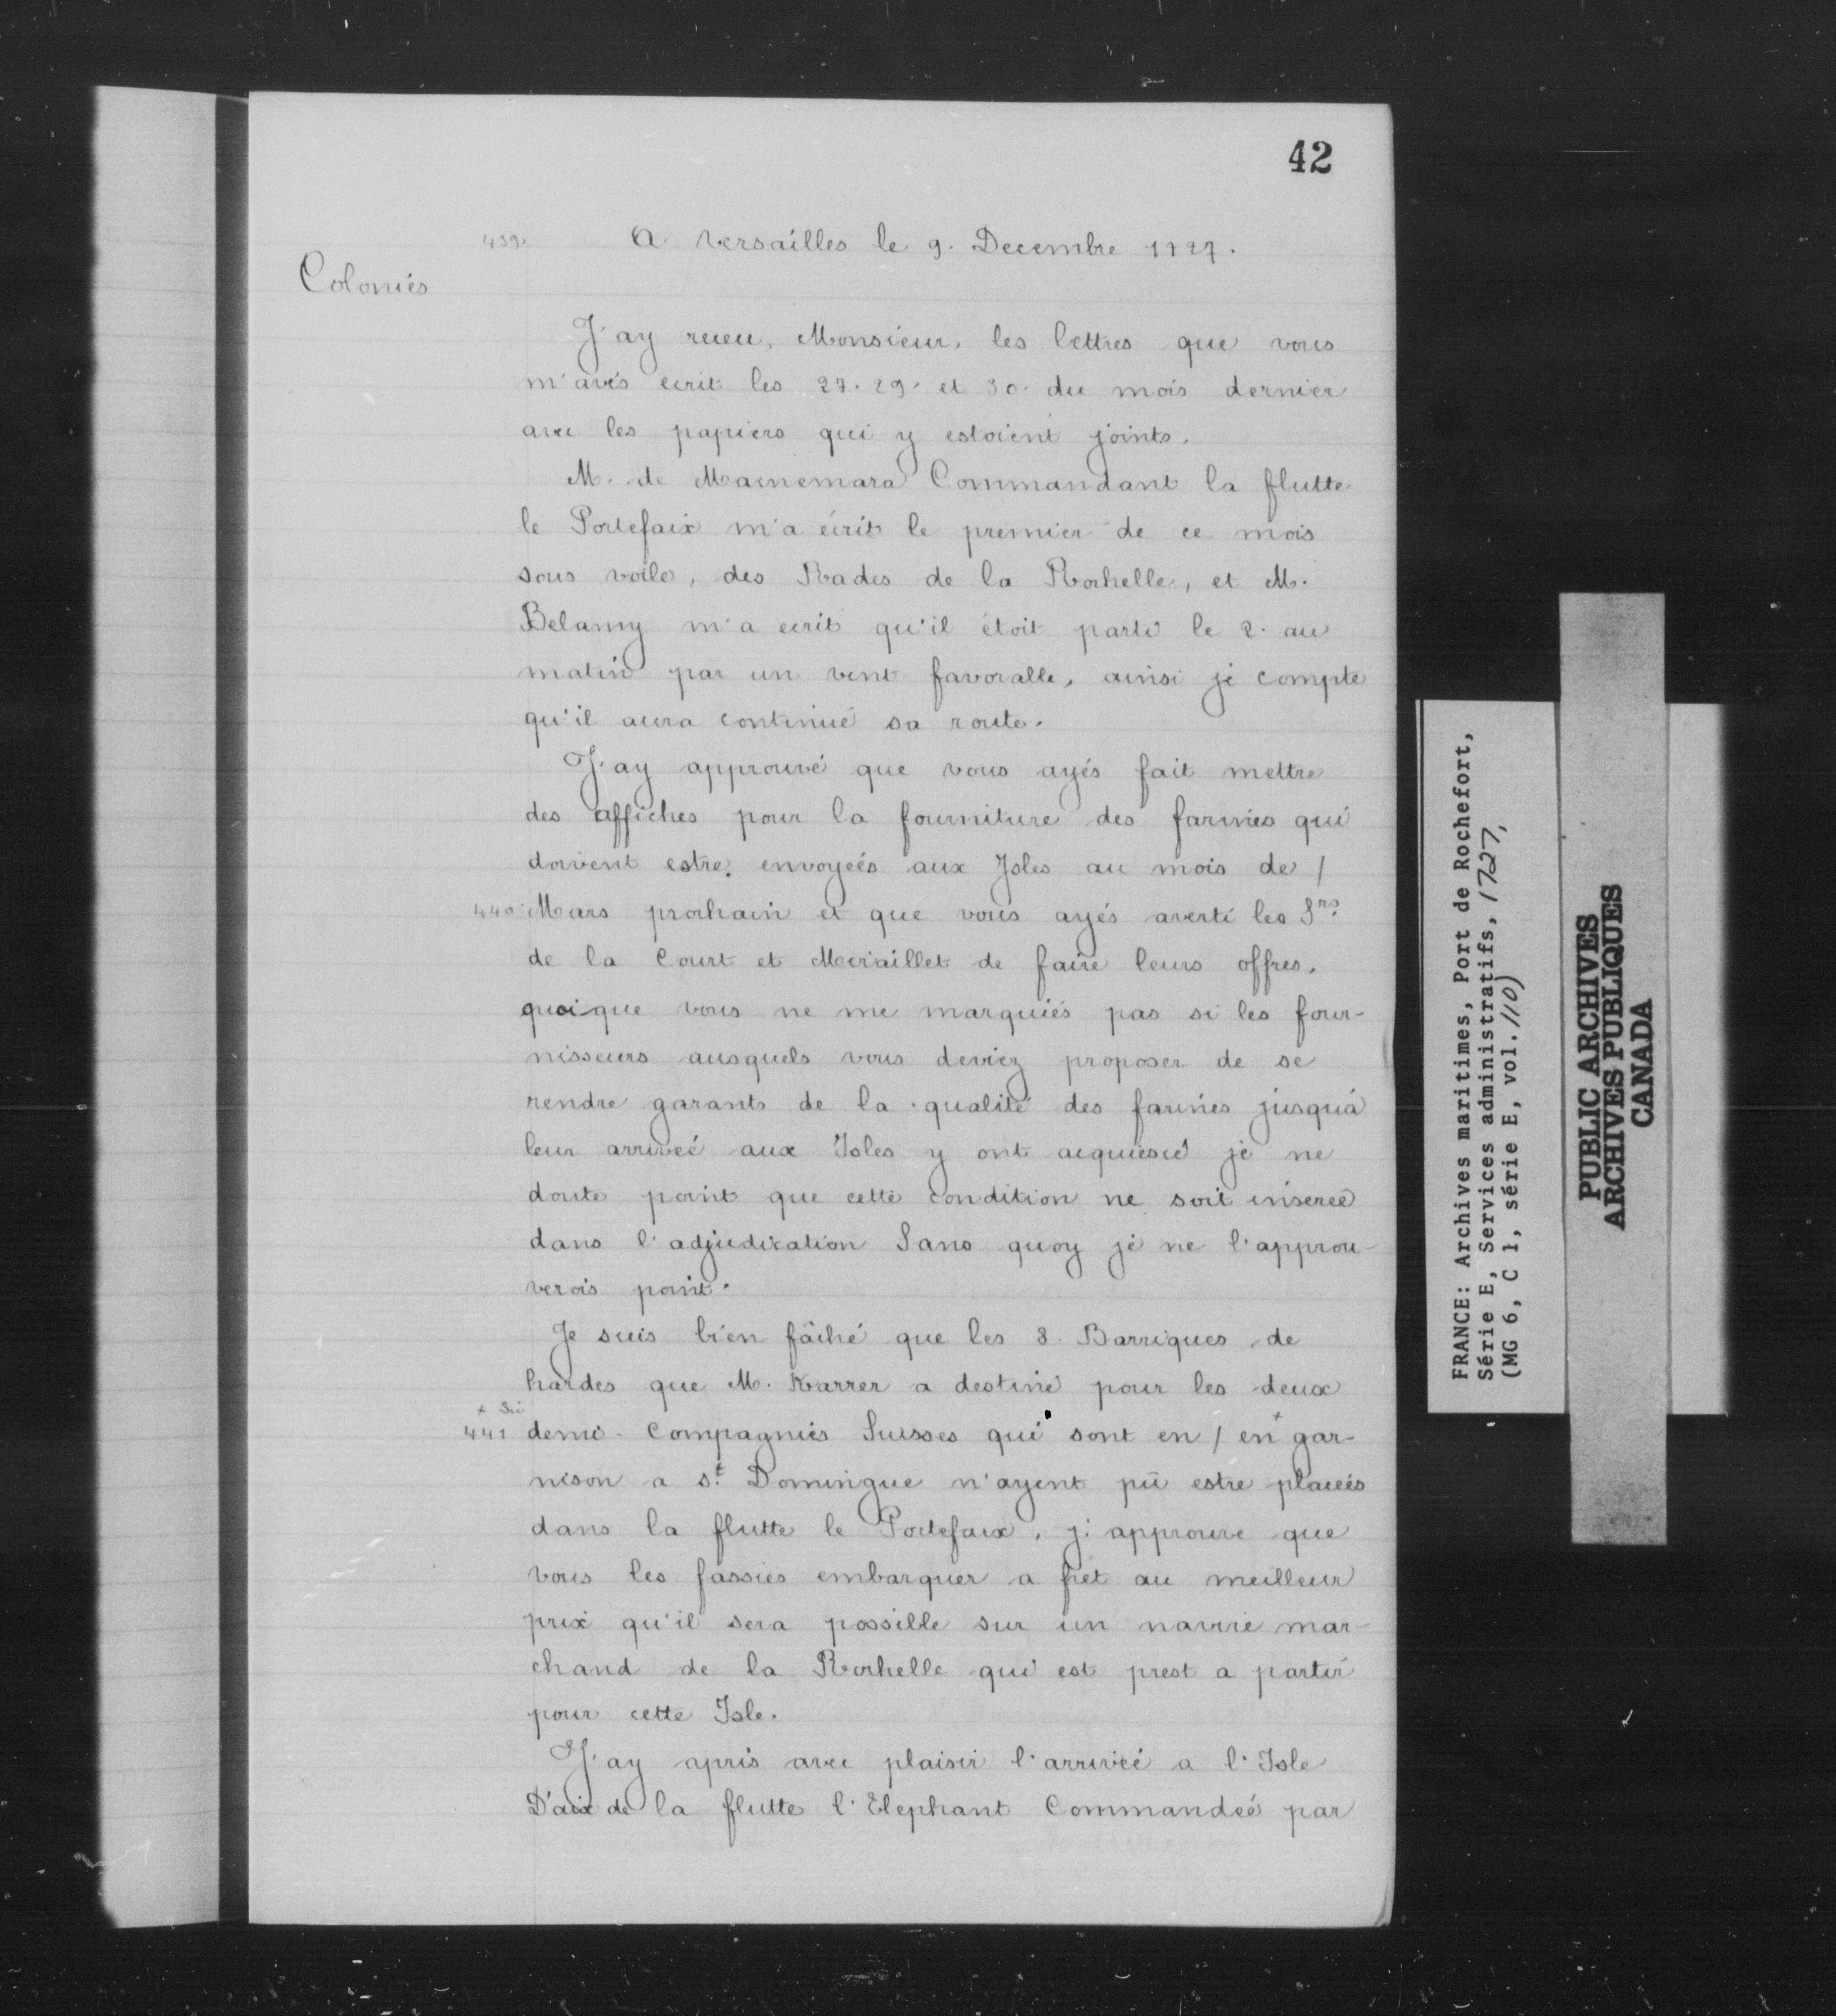 42
439. A Versailles le 9. Decembre 1727.
Colonies
J'ay receu, Monsieur, les lettres que vous
m'avés ecrit les 27. 29. et 30. du mois dernier
avec les papiers qui y estoient joints.
M. de Macnemara Commandant la flutte
le Portefaix m'a écrit le premier de ce mois
sous voile, des Rades de la Rochelle, et M.
Belamy m'a ecrit qu'il étoit parti le 2. au
matin par un vent favorable, ainsi je compte
qu'il aura continué sa route.
J'ay approuvé que vous ayés fait mettre
des affiches pour la fourniture des farines qui
doivent estre envoyeés aux Isles au mois de /
440 Mars prochain et que vous ayés averti les Srs.
de la Court et Meraillet de faire leurs offres,
quoique vous ne me marquiés pas si les four-
nisseurs ausquels vous deviez proposer de se
rendre garants de la qualité des farines jusqu'à
leur arriveé aux Isles y ont acquiescé je ne
doute point que cette condition ne soit insereé
dans l'adjudication Sans quoy je ne l'approu-
verois point.
Je suis bien fâché que les 8. Barriques de
hardes que M. Karrer a destiné pour les deux
+ Sic
441 demi-Compagnies Suisses qui sont en / en + gar-
nison a St. Domingue n'ayent pû estre placeés
dans la flutte le Portefaix, j'approuve que
vous les fassiés embarquer a fret au meilleur
prix qu'il sera possible sur un navire mar-
chand de la Rochelle qui est prest a partir
pour cette Isle.
J'ay apris avec plaisir l'arriveé a l'Isle
D'aix de la flutte l'Elephant Commandeé par
FRANCE: Archives maritimes, Port de Rochefort,
Série E, Services administratifs, 1727,
(MG 6, C 1, série E, vol. 110)
PUBLIC ARCHIVES
ARCHIVES PUBLIQUES
CANADA